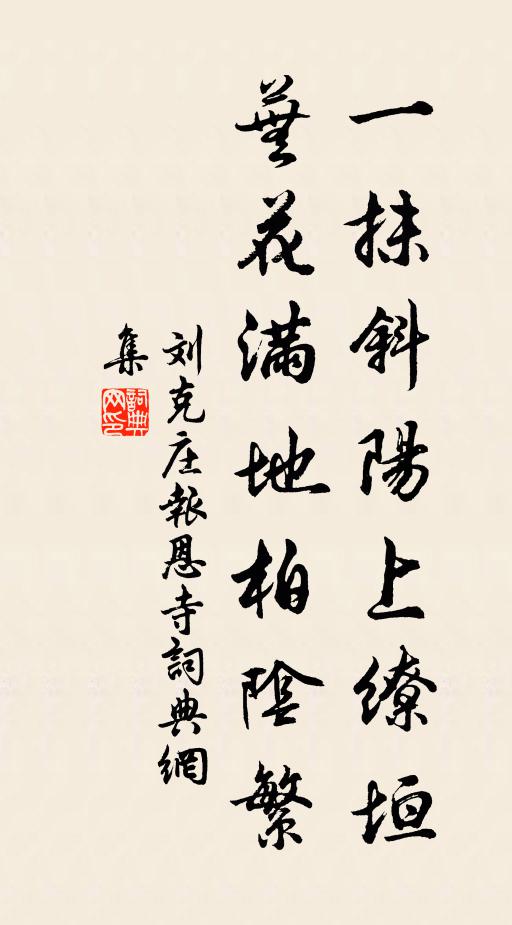 一抹斜陽上繚垣
蕪花滿地柏陰繁
刘克庄報恩寺詞典網
集
詞典网印